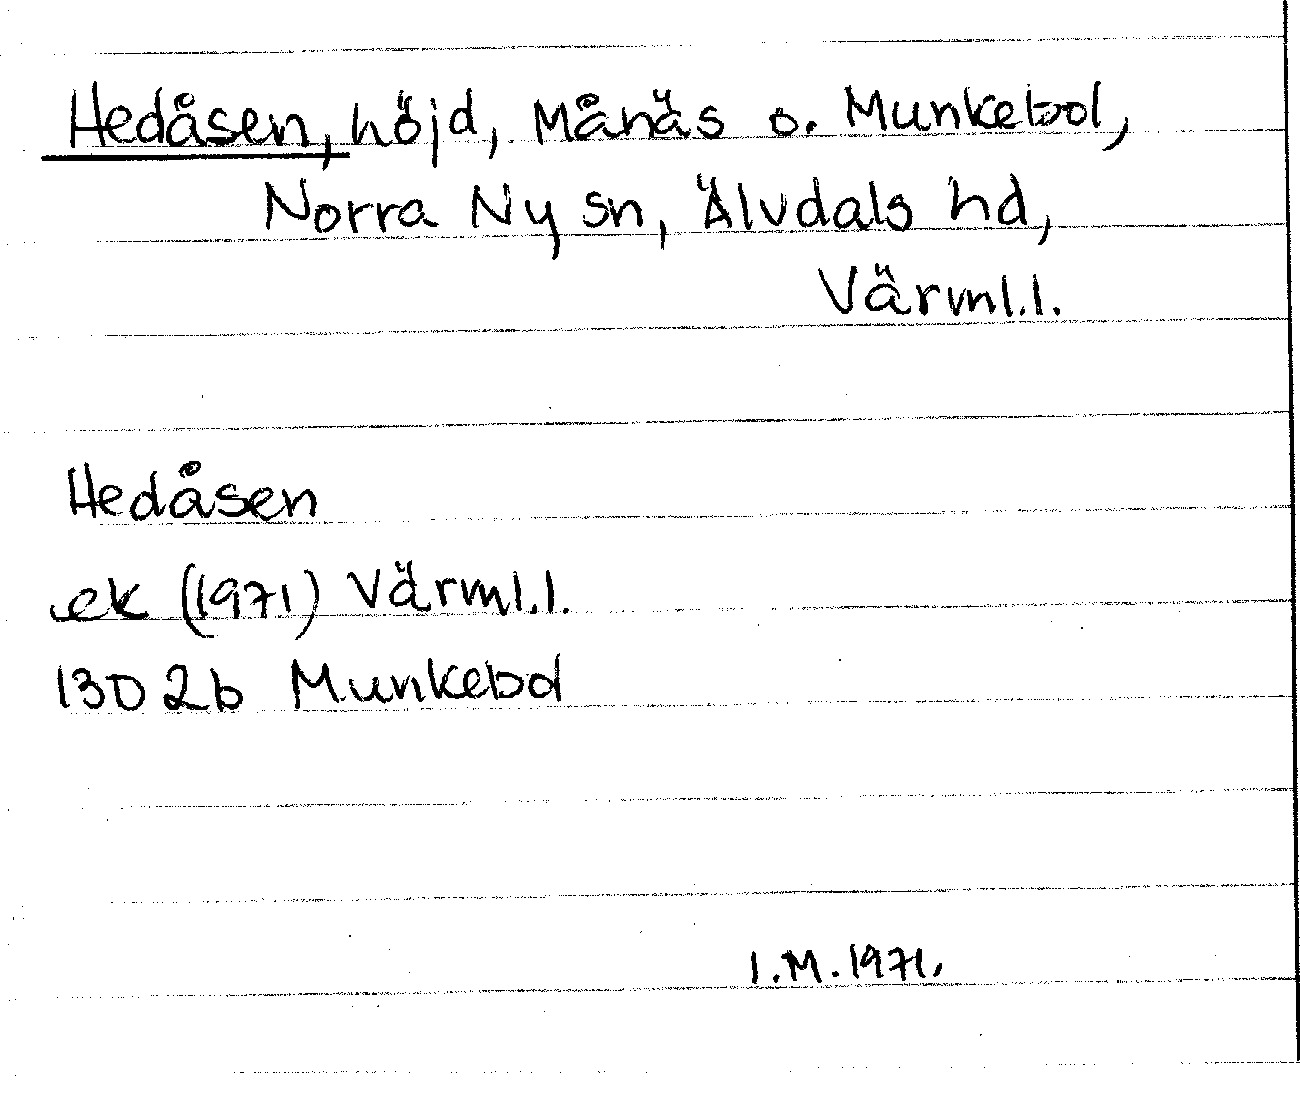 Hedåsen, höjd, Månäs o. Munkebol,
Norra Ny sn, Älvdals hd,
Värml.l.
Hedåsen
ek (1971) Värml.l.
13D 2b Munkebol
I.M.1971.